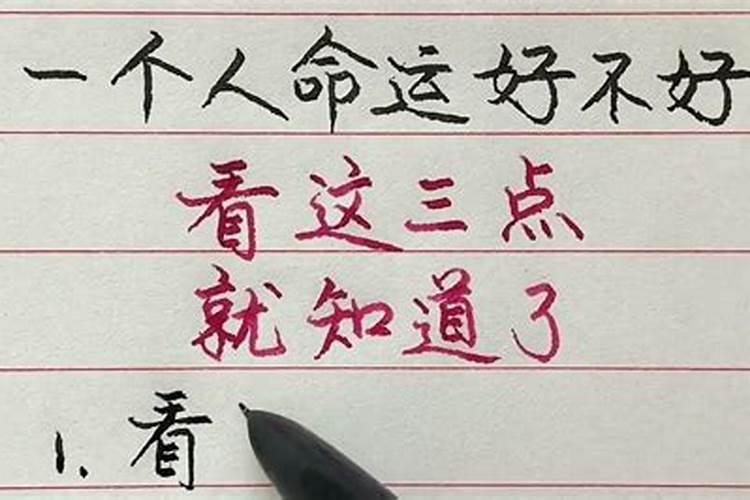 一个人命运好不好
看这三点
就知道了
1.看